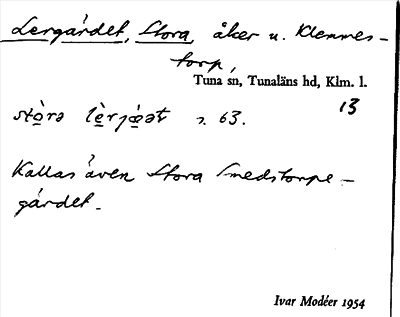 Lergärdet, Stora, åker u. Klemmes-
torp,
Tuna sn, Tunaläns hd, Klm. l.
13
s. 63.
Kallas även Stora Smedstorpe-
gärdet.
Ivar Modéer 1954